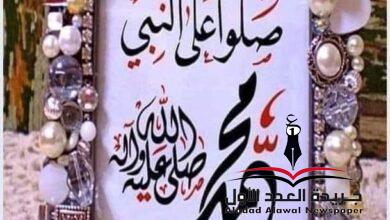 صلوا على النبي
محمد
صلى الله عليه وآله
جريدة العدد الأول
Aladad Alawal Newspaper